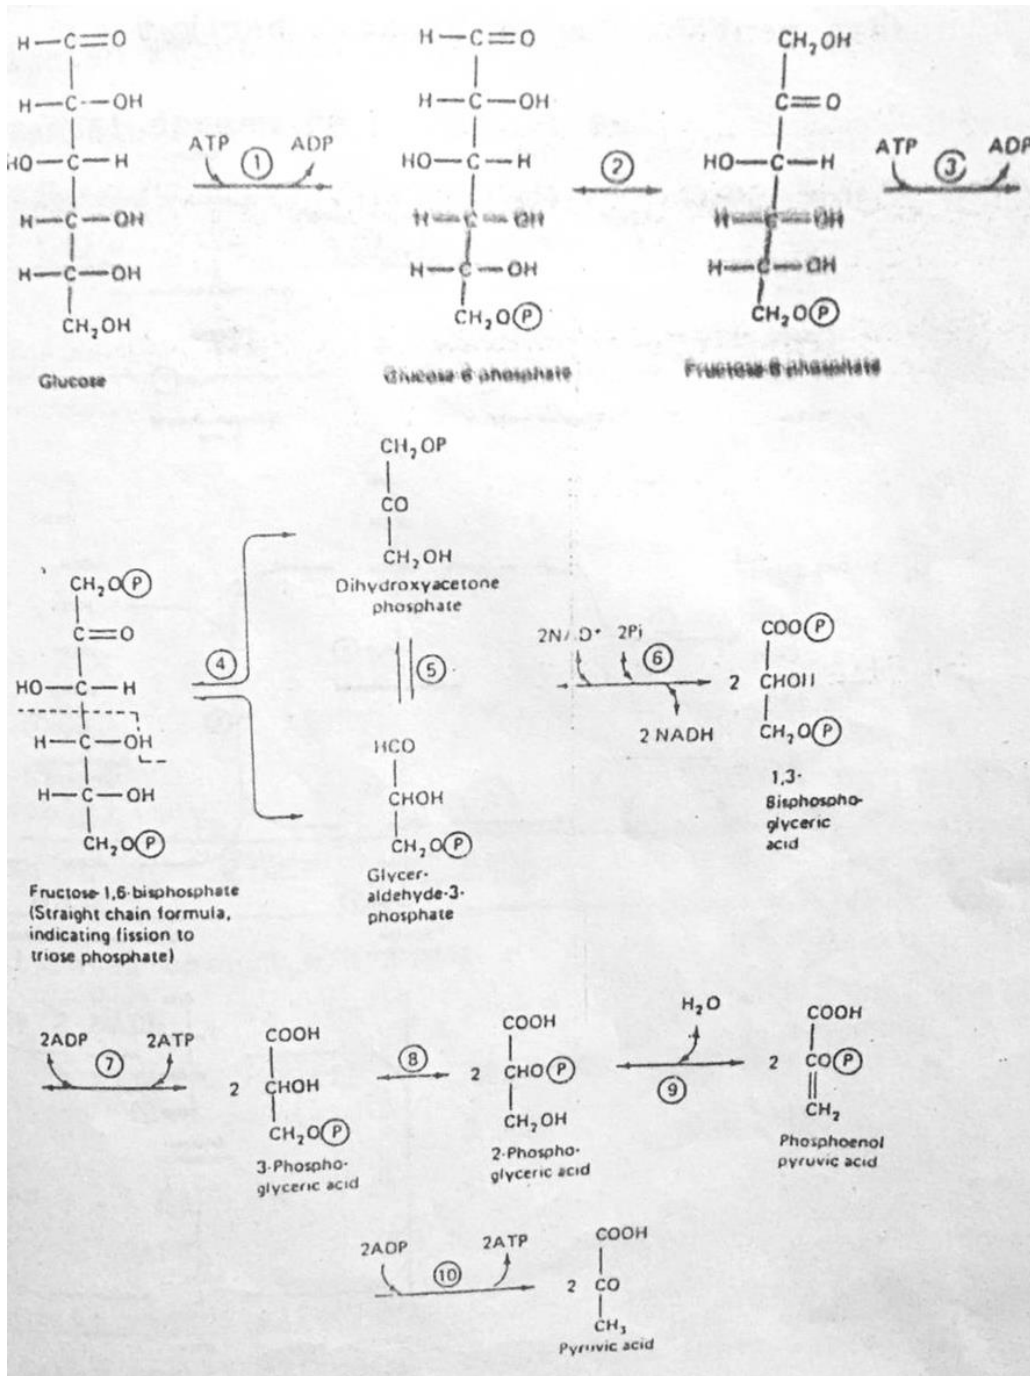 H—C=O
H—C—OH
HO—C—H
H—C—OH
H—C—OH
CH₂OH
Glucose
ATP ① ADP
H—C=O
H—C—OH
HO—C—H
H—C—OH
H—C—OH
CH₂OⓅ
Glucose 6 phosphate
②
CH₂OH
C=O
HO—C—H
H—C—OH
H—C—OH
CH₂OⓅ
Fructose 6 phosphate
ATP ③ ADP
CH₂OⓅ
C=O
HO—C—H
H—C—OH
H—C—OH
CH₂OⓅ
Fructose-1,6-bisphosphate
(Straight chain formula,
indicating fission to
triose phosphate)
④
CH₂OP
CO
CH₂OH
Dihydroxyacetone
phosphate
⑤
HCO
CHOH
CH₂OⓅ
Glycer-
aldehyde-3-
phosphate
2Pi
⑥
2 NADH
COOⓅ
2 CHOH
CH₂OⓅ
1,3-
Bisphospho-
glyceric
acid
2ADP 2ATP
⑦
COOH
2 CHOH
CH₂OⓅ
3-Phospho-
glyceric acid
⑧
COOH
2 CHOⓅ
CH₂OH
2-Phospho-
glyceric acid
H₂O
⑨
COOH
2 COⓅ
CH₂
Phosphoenol
pyruvic acid
2ADP 2ATP
⑩
COOH
2 CO
CH₃
Pyruvic acid